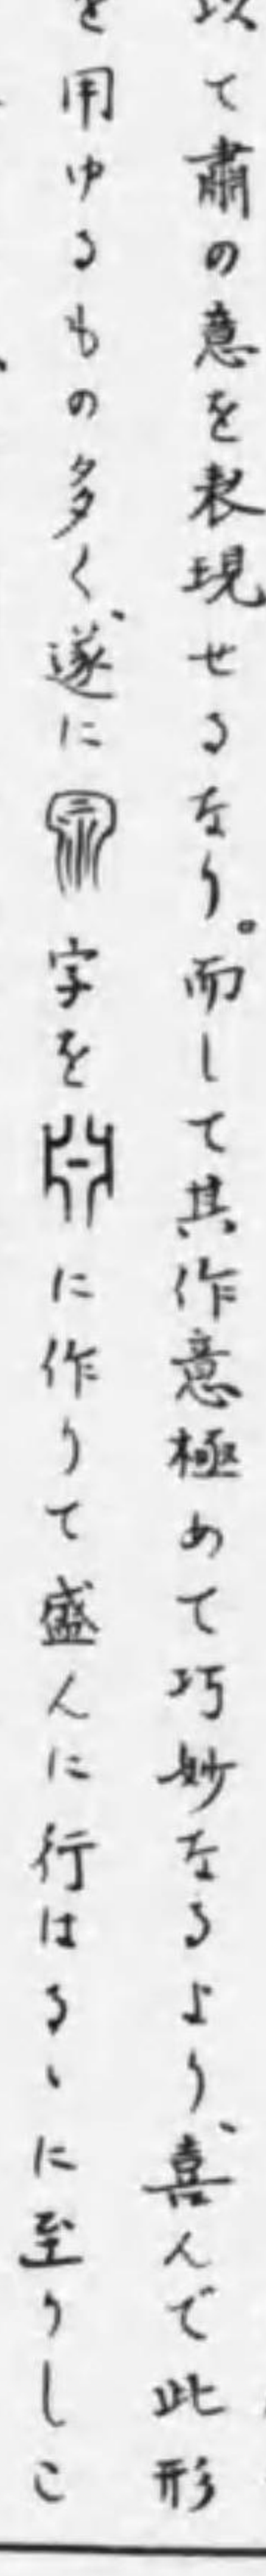 以て肅の意を表現せるなり。而して其作意極めて巧妙なるより、喜んで此形
を用ゆるもの多く、遂に字をに作りて盛んに行はるゝに至りしこ